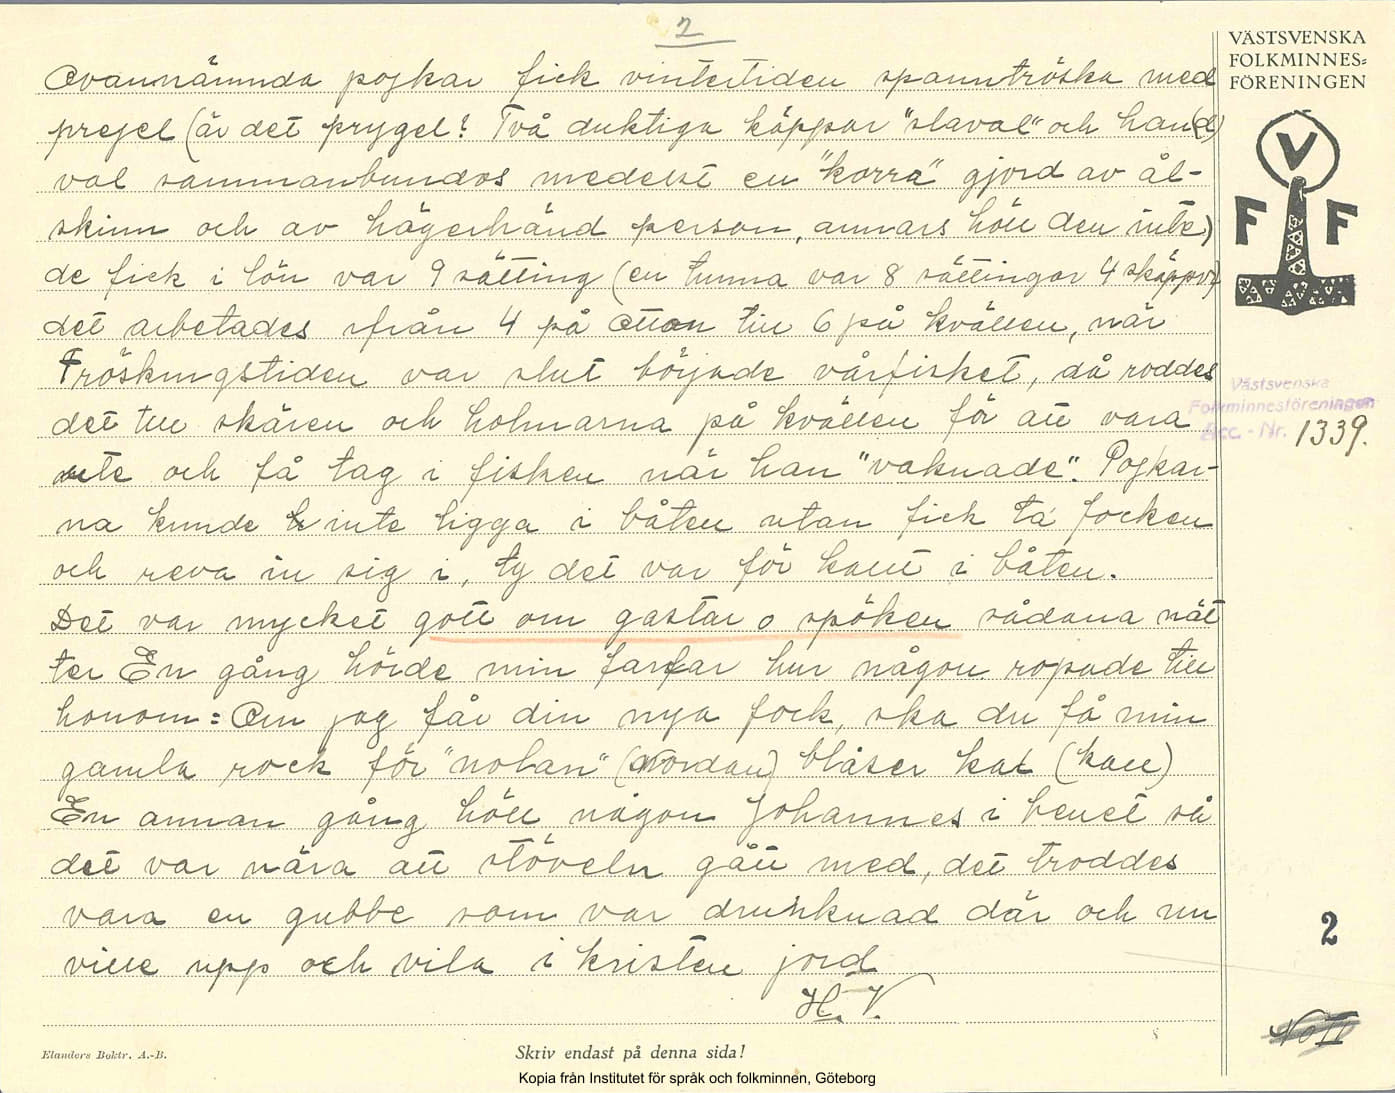 2
VÄSTSVENSKA
FOLKMINNES=
FÖRENINGEN
V
F F
Ovannämnda pojkar fick vintertiden spanntröska med
prejel (är det prygel? Två duktiga käppar "slaval" och han(d)
val sammanbundos medelst en "korra" gjord av ål-
skinn och av högerhänd person, annars höll den inte)
de fick i lön var 9 sätting (en tunna var 8 sättingar 4 skäppor)
det arbetades ifrån 4 på ottan till 6 på kvällen, när
Tröskningstiden var slut började vårfisket, då roddes
det till skären och holmarna på kvällen för att vara
ute och få tag i fisken när han "vaknade". Pojkar-
na kunde inte ligga i båten utan fick ta focken
och reva in sig i, ty det var för kallt i båten.
Det var mycket gott om gastar o spöken sådana nät
ter En gång hörde min farfar hur någon ropade till
honom: Om jag får din nya fock, ska du få min
gamla rock för "nolan" (Nordan) blåser kal (kall)
En annan gång höll någon Johannes i benet så
det var nära att stöveln gått med, det troddes
vara en gubbe som var drunknad där och nu
ville upp och vila i kristen jord
H. V.
Västsvenska
Folkminnesföreningen
Acc. - Nr. 1339.
2
No II
Elanders Boktr. A.-B.
Skriv endast på denna sida!
Kopia från Institutet för språk och folkminnen, Göteborg